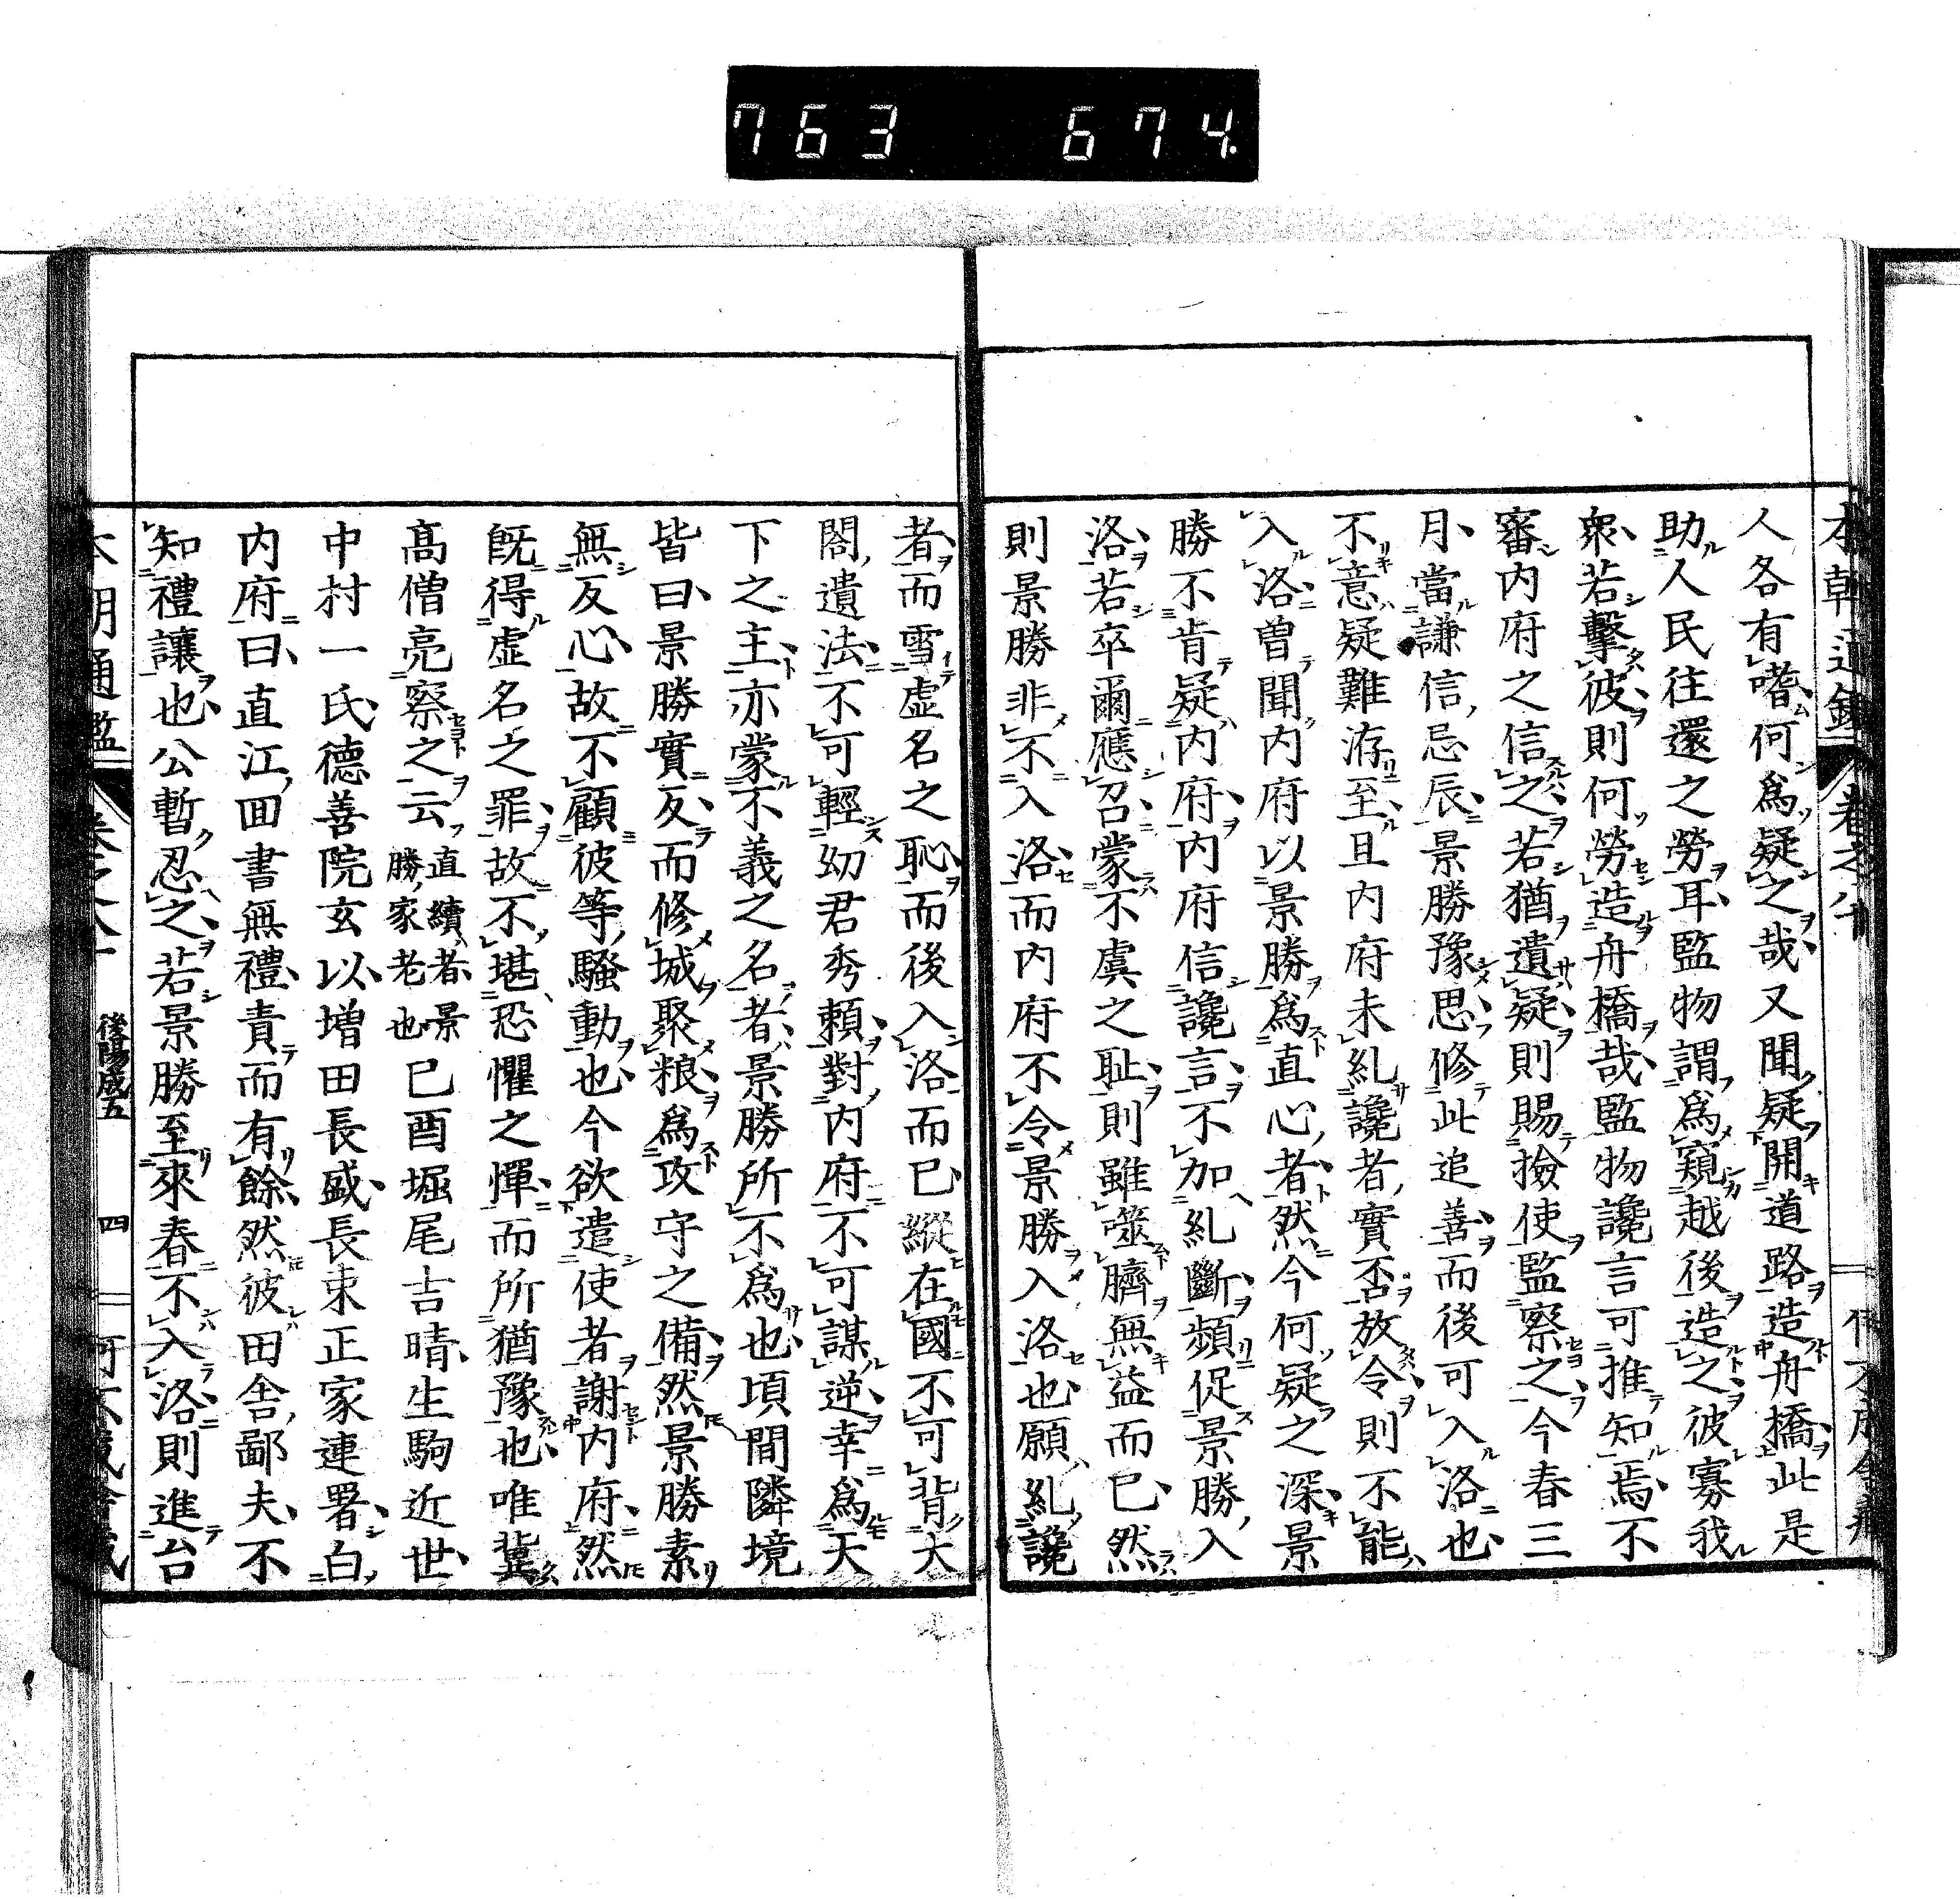 763 674
人各有嗜何爲疑之哉又聞疑開道路造舟橋此是
助人民往還之勞耳監物謂爲窺越後造之彼寡我
衆若擊彼則何勞造舟橋哉監物讒言可推知焉不
審内府之信之若猶遺疑則賜撿使監察之今春三
月當謙信忌辰景勝豫思修此追善而後可入洛也
不意疑難洊至且内府未糺讒者實否放令則不能
入洛曽聞内府以景勝爲直心者然今何疑之深景
勝不肯疑内府内府信讒言不加糺斷頻促景勝入
洛若卒爾應召蒙不虞之耻則雖噬臍無益而已然
則景勝非不入洛而内府不令景勝入洛也願糺讒
者而雪虚名之恥而後入洛而已縱在國不可背大
閤遺法不可輕幼君秀頼對内府不可謀逆幸爲天
下之主亦蒙不義之名者景勝所不爲也頃間隣境
皆曰景勝實反而修城聚粮爲攻守之備然景勝素
無反心故不顧彼等騷動也今欲遣使者謝内府然
旣得虚名之罪故不堪恐懼之憚而所猶豫也唯冀
髙僧亮察之云直續者景勝家老也已酉堀尾吉晴生駒近世
中村一氏德善院玄以増田長盛長束正家連署白
内府曰直江囬書無禮責而有餘然彼田舎鄙夫不
知禮讓也公暫忍之若景勝至來春不入洛則進台
後陽成五
四